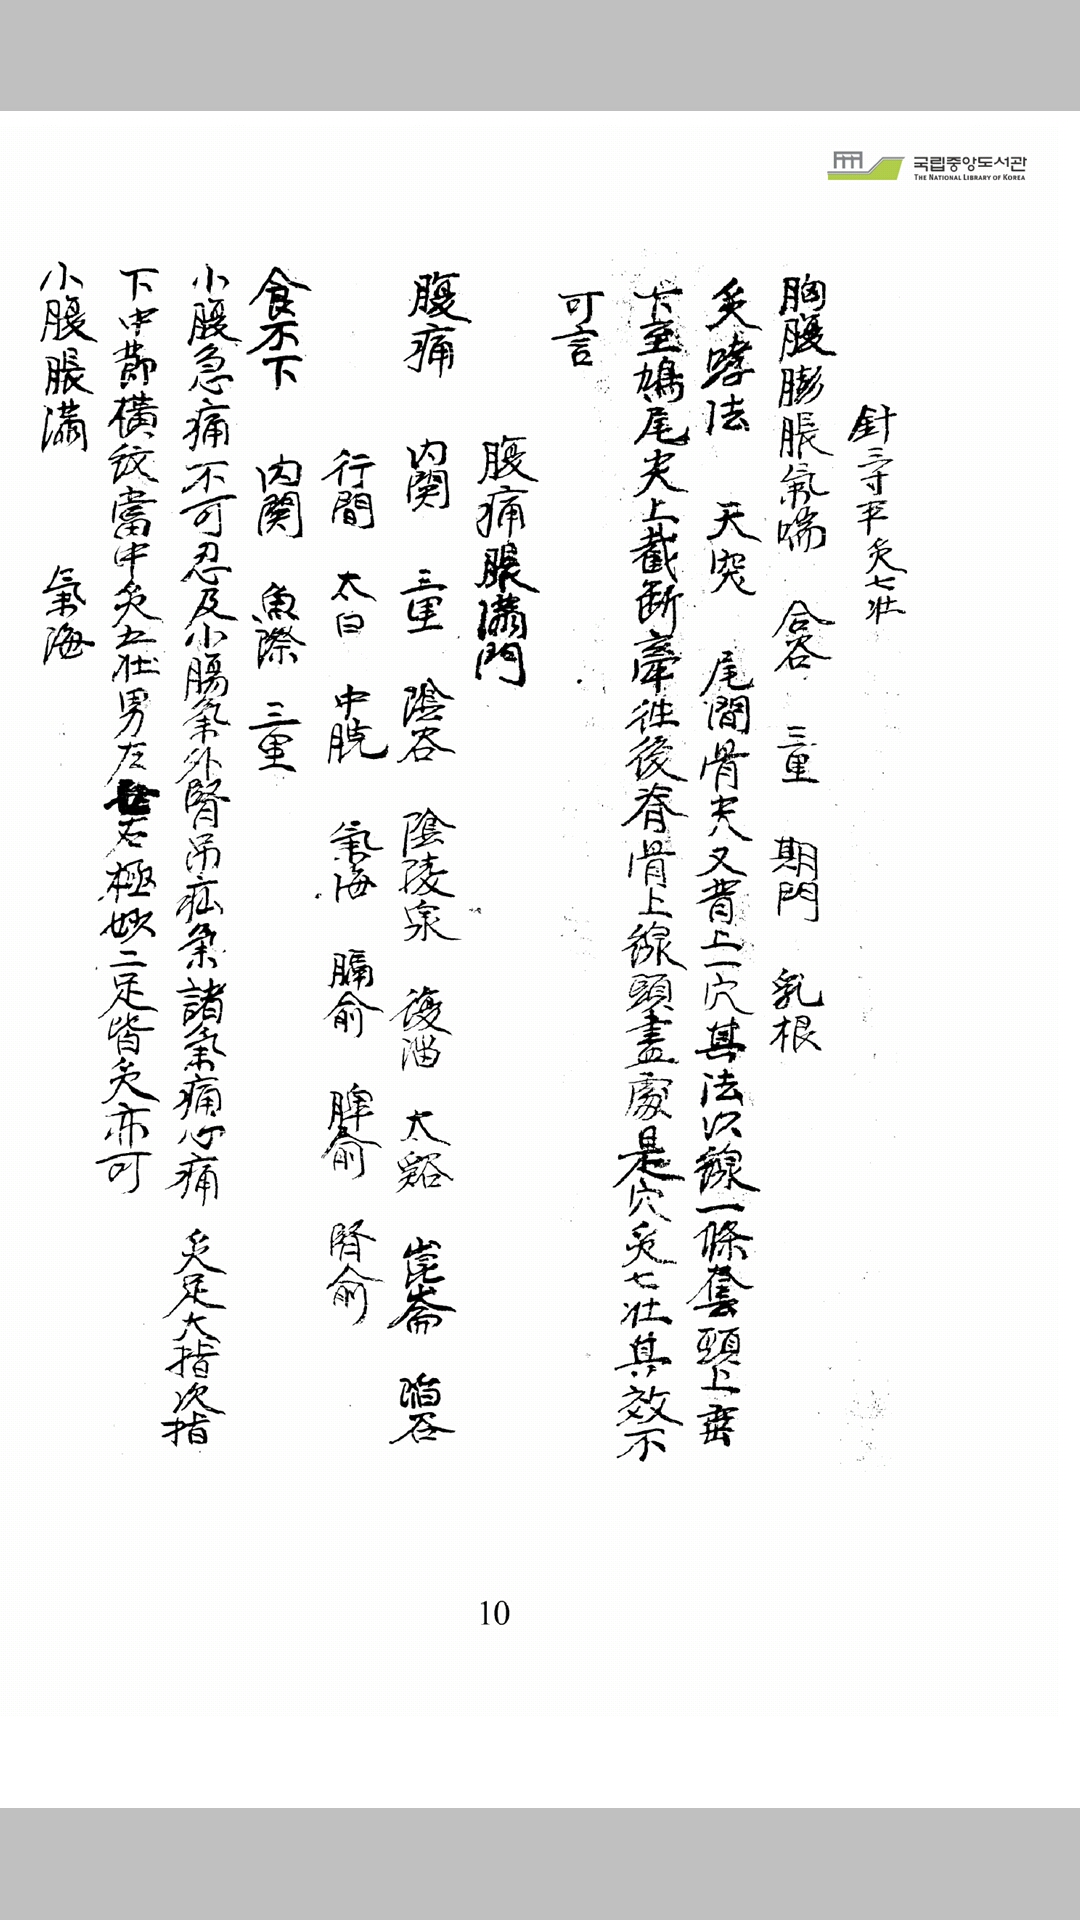 국립중앙도서관
THE NATIONAL LIBRARY OF KOREA
針三寸半灸七壯
胸腹膨脹氣喘 合谷 三里 期門 乳根
灸哮法 天突 尾閭骨尖又背上一穴其法以線一條套頭上垂
下至鳩尾尖上截斷牽往後脊骨上線頭盡處是穴灸七壯其效不
可言
腹痛脹滿門
腹痛 內関 三里 陰谷 陰陵泉 復溜 太谿 崑崙 陷谷
行間 太白 中脘 氣海 膈俞 脾俞 腎俞
食不下 內関 魚際 三里
小腹急痛不可忍及小腸氣外腎吊疝氣諸氣痛心痛 灸足大指次指
下中節橫紋當中灸五壯男左右極妙二足皆灸亦可
小腹脹滿 氣海
10